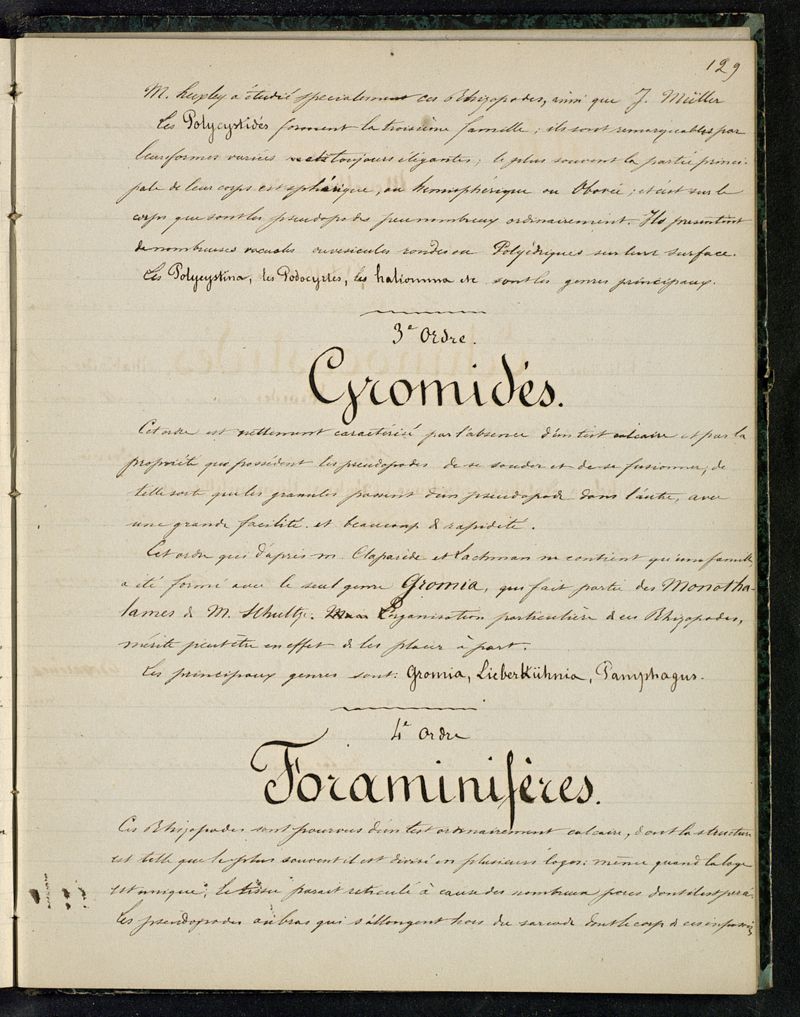 129
M. Huxley a étudié specialement ces Rhizopodes, ainsi que J. Müller
Les Polycystidés forment la troisième famille ; ils sont remarquables par
leurs formes variées et toujours élégantes ; le plus souvent la partie princi-
pale de leur corps est sphérique, ou hemisphérique ou Obovée ; et c'est sur le
corps que sont les pseudopodes peu nombreux ordinairement. Ils presentent
de nombreuses vacuoles ou vesicules rondes ou Polyédriques sur leur surface.
Les Polycystina, les Podocyrtes, les haliomma etc sont les genres principaux.
3e Ordre.
Gromidés.
Cet ordre est nettement caractérisé par l'absence d'un test calcaire et par la
propriété que possèdent les pseudopodes de se souder et de se fusionner, de
telle sorte que les granules passent d'un pseudopode dans l'autre, avec
une grande facilité et beaucoup de rapidité.
Cet ordre qui d'après M. Claparède et Lachman ne contient qu'une famille
a été formé avec le seul genre Gromia, qui fait partie des Monotha-
lames de M. Schultze. L'organisation particulière de ces Rhizopodes,
mérite peut être en effet de les placer à part.
Les principaux genres sont: Gromia, Lieberkühnia, Pamphagus.
4e Ordre
Foraminifères.
Ces Rhizopodes sont pourvus d'un test ordinairement calcaire, dont la structure
est telle que le plus souvent il est divisé en plusieurs loges: même quand la loge
est unique, le tissu parait reticulé à cause des nombreux pores dont il est percé.
Les pseudopodes ou bras qui s'allongent hors du sarcode dont le corps de ces